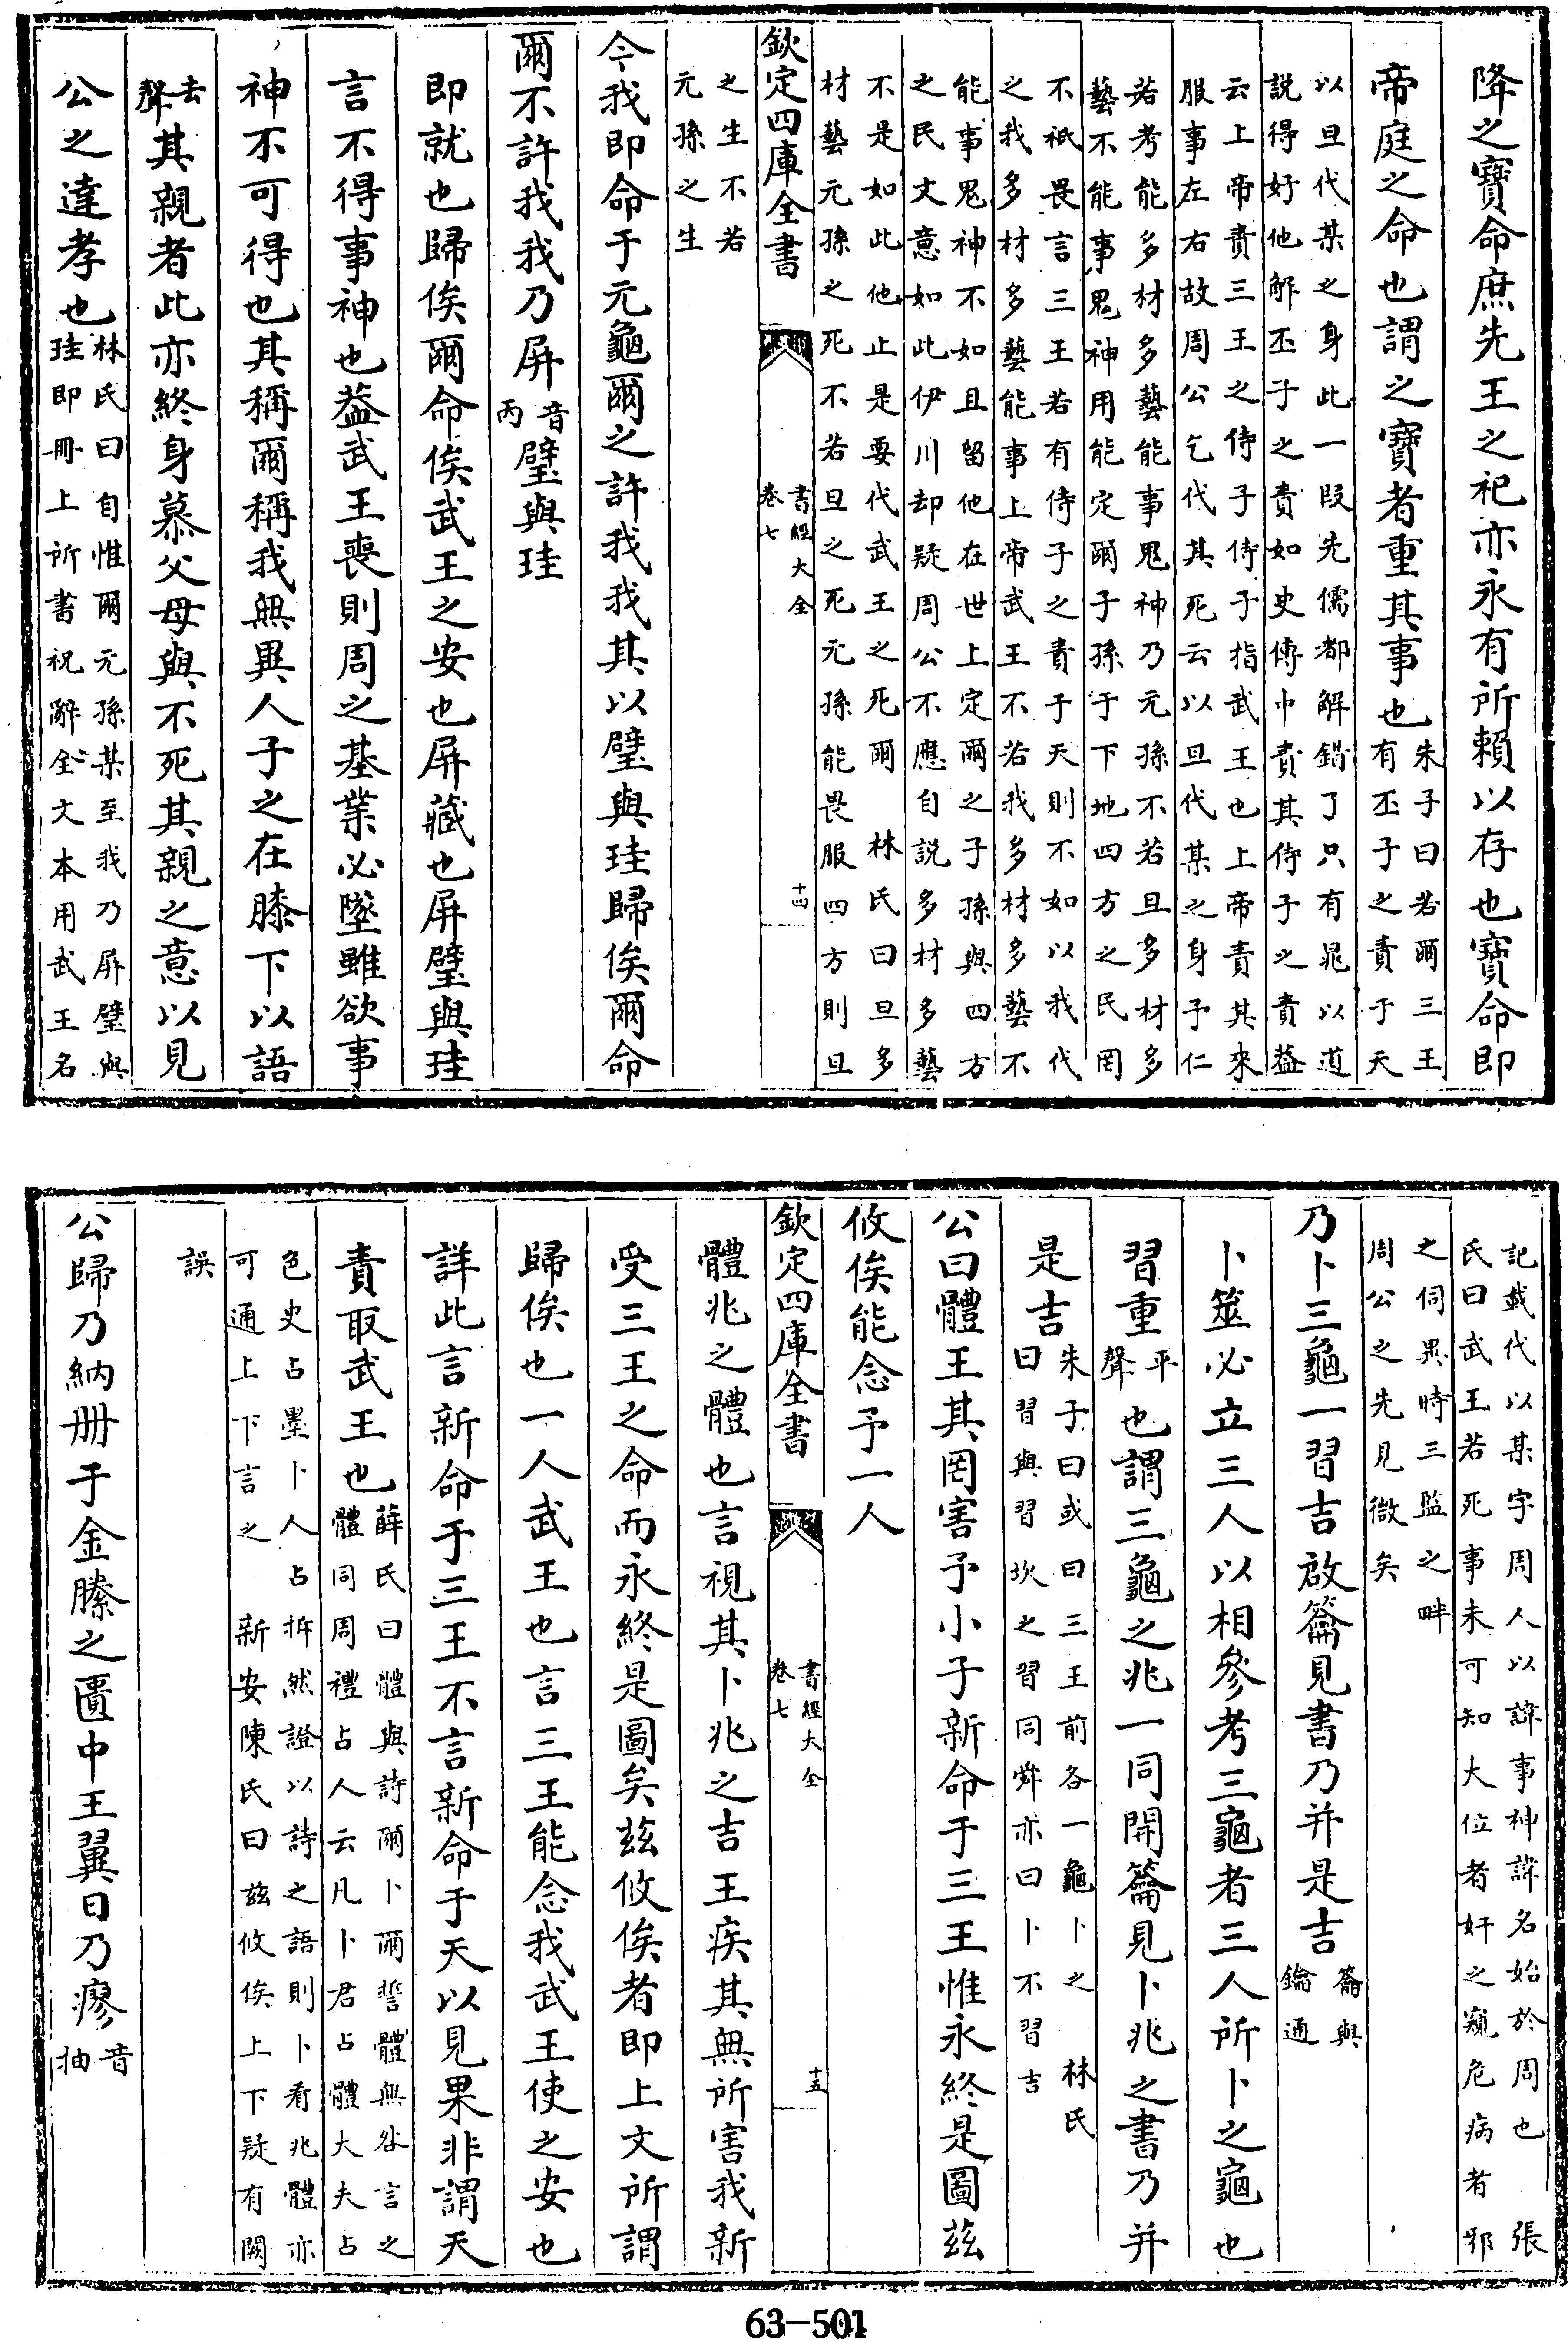 降之寶命庶先王之祀亦永有所賴以存也寶命即
帝庭之命也謂之寶者重其事也
朱子曰若爾三王
有丕子之責于天
以旦代某之身此一段先儒都解錯了只有晁以道
説得好他解丕子之責如史傳中責其侍子之責葢
云上帝責三王之侍子侍子指武王也上帝責其來
服事左右故周公乞代其死云以旦代某之身予仁
若考能多材多藝能事鬼神乃元孫不若旦多材多
藝不能事鬼神用能定爾子孫于下地四方之民罔
不祇畏言三王若有侍子之責于天則不如以我代
之我多材多藝能事上帝武王不若我多材多藝不
能事鬼神不如且留他在世上定爾之子孫與四方
之民文意如此伊川却疑周公不應自説多材多藝
不是如此他止是要代武王之死爾 林氏曰旦多
材藝元孫之死不若旦之死元孫能畏服四方則旦
欽定四庫全書
書經大全
卷七
十四
之生不若
元孫之生
今我即命于元龜爾之許我我其以璧與珪歸俟爾命
爾不許我我乃屏
音
丙
璧與珪
即就也歸俟爾命俟武王之安也屏藏也屏璧與珪
言不得事神也葢武王喪則周之基業必墜雖欲事
神不可得也其稱爾稱我無異人子之在膝下以語
去
聲
其親者此亦終身慕父母與不死其親之意以見
公之達孝也
林氏曰自惟爾元孫某至我乃屏璧與
珪即冊上所書祝辭全文本用武王名
記載代以某字周人以諱事神諱名始於周也 張
氏曰武王若死事未可知大位者奸之窺危病者邪
之伺異時三監之畔
周公之先見微矣
乃卜三龜一習吉啟籥見書乃并是吉
籥與
鑰通
卜筮必立三人以相參考三龜者三人所卜之龜也
習重
平
聲
也謂三龜之兆一同開籥見卜兆之書乃并
是吉
朱子曰或曰三王前各一龜卜之 林氏
曰習與習坎之習同舜亦曰卜不習吉
公曰體王其罔害予小子新命于三王惟永終是圖茲
攸俟能念予一人
欽定四庫全書
書經大全
卷七
十五
體兆之體也言視其卜兆之吉王疾其無所害我新
受三王之命而永終是圖矣茲攸俟者即上文所謂
歸俟也一人武王也言三王能念我武王使之安也
詳此言新命于三王不言新命于天以見果非謂天
責取武王也
薛氏曰體與詩爾卜爾筮體無咎言之
體同周禮占人云凡卜君占體大夫占
色史占墨卜人占拆然證以詩之語則卜看兆體亦
可通上下言之 新安陳氏曰茲攸俟上下疑有闕
誤
公歸乃納冊于金縢之匱中王翼日乃瘳
音
抽
63-501